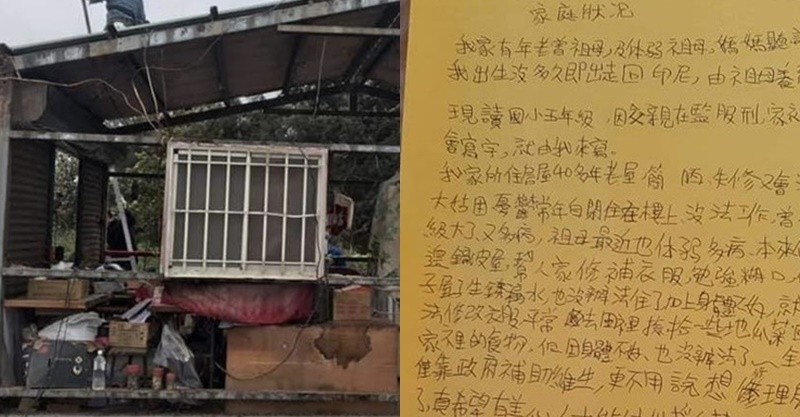 家庭狀況
我家有年老當祖母,及体弱祖母,媽媽聽
我出生沒多久即出走回印尼,由祖母養
現讀國小五年級,因父親在監服刑,家
會寫字,就由我來寫。
我家所住舊屋40多年老屋簡陋,失修又會
大姑因憂鬱常年自閉住在樓上,沒法工作,
級大了又多病,祖母最近也体弱多病,本來
邊鐵皮屋,幫人家修補衣服,勉強糊口,
子屋了生鏽漏水,也沒辦法住了加上身體不好,
法修改衣服平常去田裡撿拾一些地瓜葉
家裡的食物,但因身體不好,也沒辦法了
僅靠政府補助維生,更不用說想修理
了真希望有善